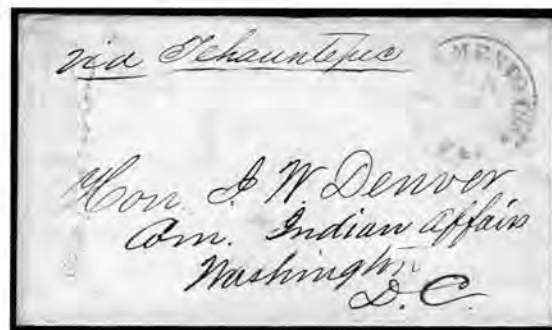 via Tehauntepec
MENTO CITY
CAL
Hon. J W Denver
Com. Indian Affairs
Washington
D.C.